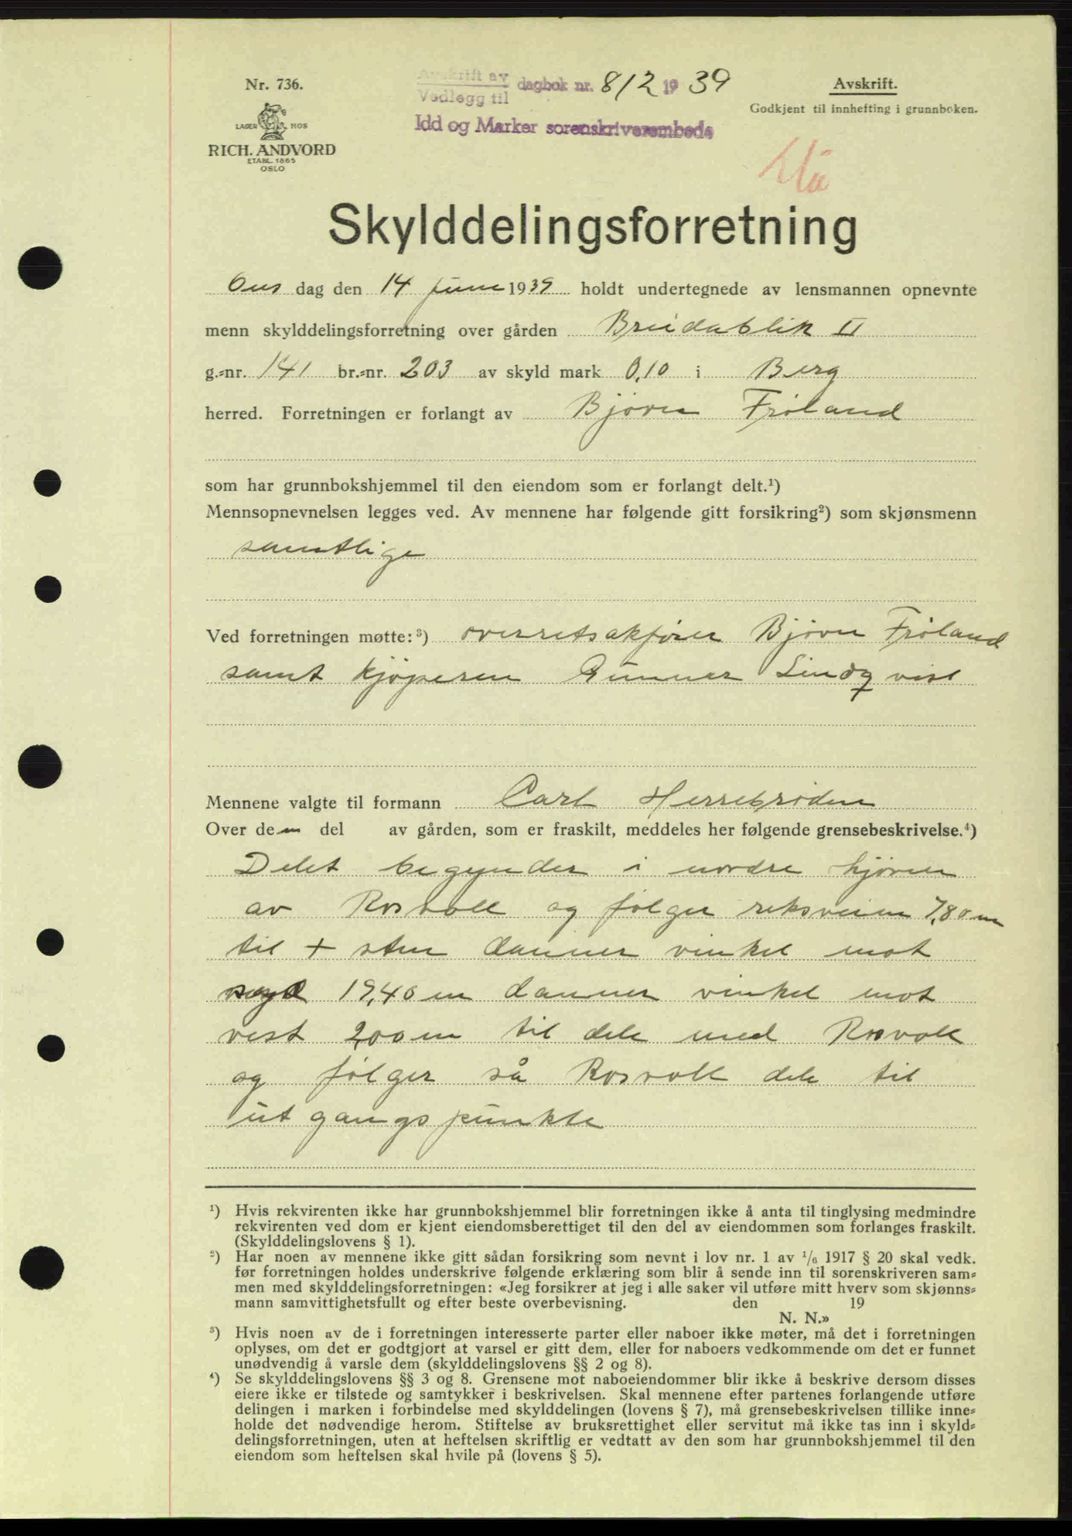 Nr. 736.
LAGER HOS
RICH. ANDVORD
ETABL. 1865
OSLO
Avskrift av
Vedlegg til
dagbok nr. 812 1939
Idd og Marker sorenskriverembede
Avskrift.
Godkjent til innhefting i grunnboken.
Skylddelingsforretning
Ons dag den 14 juni 1939 holdt undertegnede av lensmannen opnevnte
menn skylddelingsforretning over gården Breidablik II
g.-nr. 141 br.-nr. 203 av skyld mark 0,10 i Berg
herred. Forretningen er forlangt av Bjørn Frøland
som har grunnbokshjemmel til den eiendom som er forlangt delt.¹)
Mennsopnevnelsen legges ved. Av mennene har følgende gitt forsikring²) som skjønsmenn
samtlige
Ved forretningen møtte:³) overretsakfører Bjørn Frøland
samt kjøperen Gunnar Lindqvist
Mennene valgte til formann Carl Herrebrøden
Over den del av gården, som er fraskilt, meddeles her følgende grensebeskrivelse.⁴)
Delet begynder i nordre hjørne
av Rosvoll og følger riksveien 7,80 m
til + sten danner vinkel mot
syd 19,40 m danner vinkel mot
vest 2,00 m til dele med Rosvoll
og følger så Rosvoll dele til
utgangspunkte
¹) Hvis rekvirenten ikke har grunnbokshjemmel blir forretningen ikke å anta til tinglysing medmindre
rekvirenten ved dom er kjent eiendomsberettiget til den del av eiendommen som forlanges fraskilt.
(Skylddelingslovens § 1).
²) Har noen av mennene ikke gitt sådan forsikring som nevnt i lov nr. 1 av ¹/₆ 1917 § 20 skal vedk.
før forretningen holdes underskrive følgende erklæring som blir å sende inn til sorenskriveren sam-
men med skylddelingsforretningen: «Jeg forsikrer at jeg i alle saker vil utføre mitt hverv som skjønns-
mann samvittighetsfullt og efter beste overbevisning. den 19
N. N.»
³) Hvis noen av de i forretningen interesserte parter eller naboer ikke møter, må det i forretningen
oplyses, om det er godtgjort at varsel er gitt dem, eller for naboers vedkommende om det er funnet
unødvendig å varsle dem (skylddelingslovens §§ 2 og 8).
⁴) Se skylddelingslovens §§ 3 og 8. Grensene mot naboeiendommer blir ikke å beskrive dersom disses
eiere ikke er tilstede og samtykker i beskrivelsen. Skal mennene efter partenes forlangende utføre
delingen i marken i forbindelse med skylddelingen (lovens § 7), må grensebeskrivelsen tillike inne-
holde det nødvendige herom. Stiftelse av bruksrettighet eller servitut må ikke tas inn i skyld-
delingsforretningen, uten at heftelsen skriftlig er vedtatt av den som har grunnbokshjemmel til den
eiendom som heftelsen skal hvile på (lovens § 5).